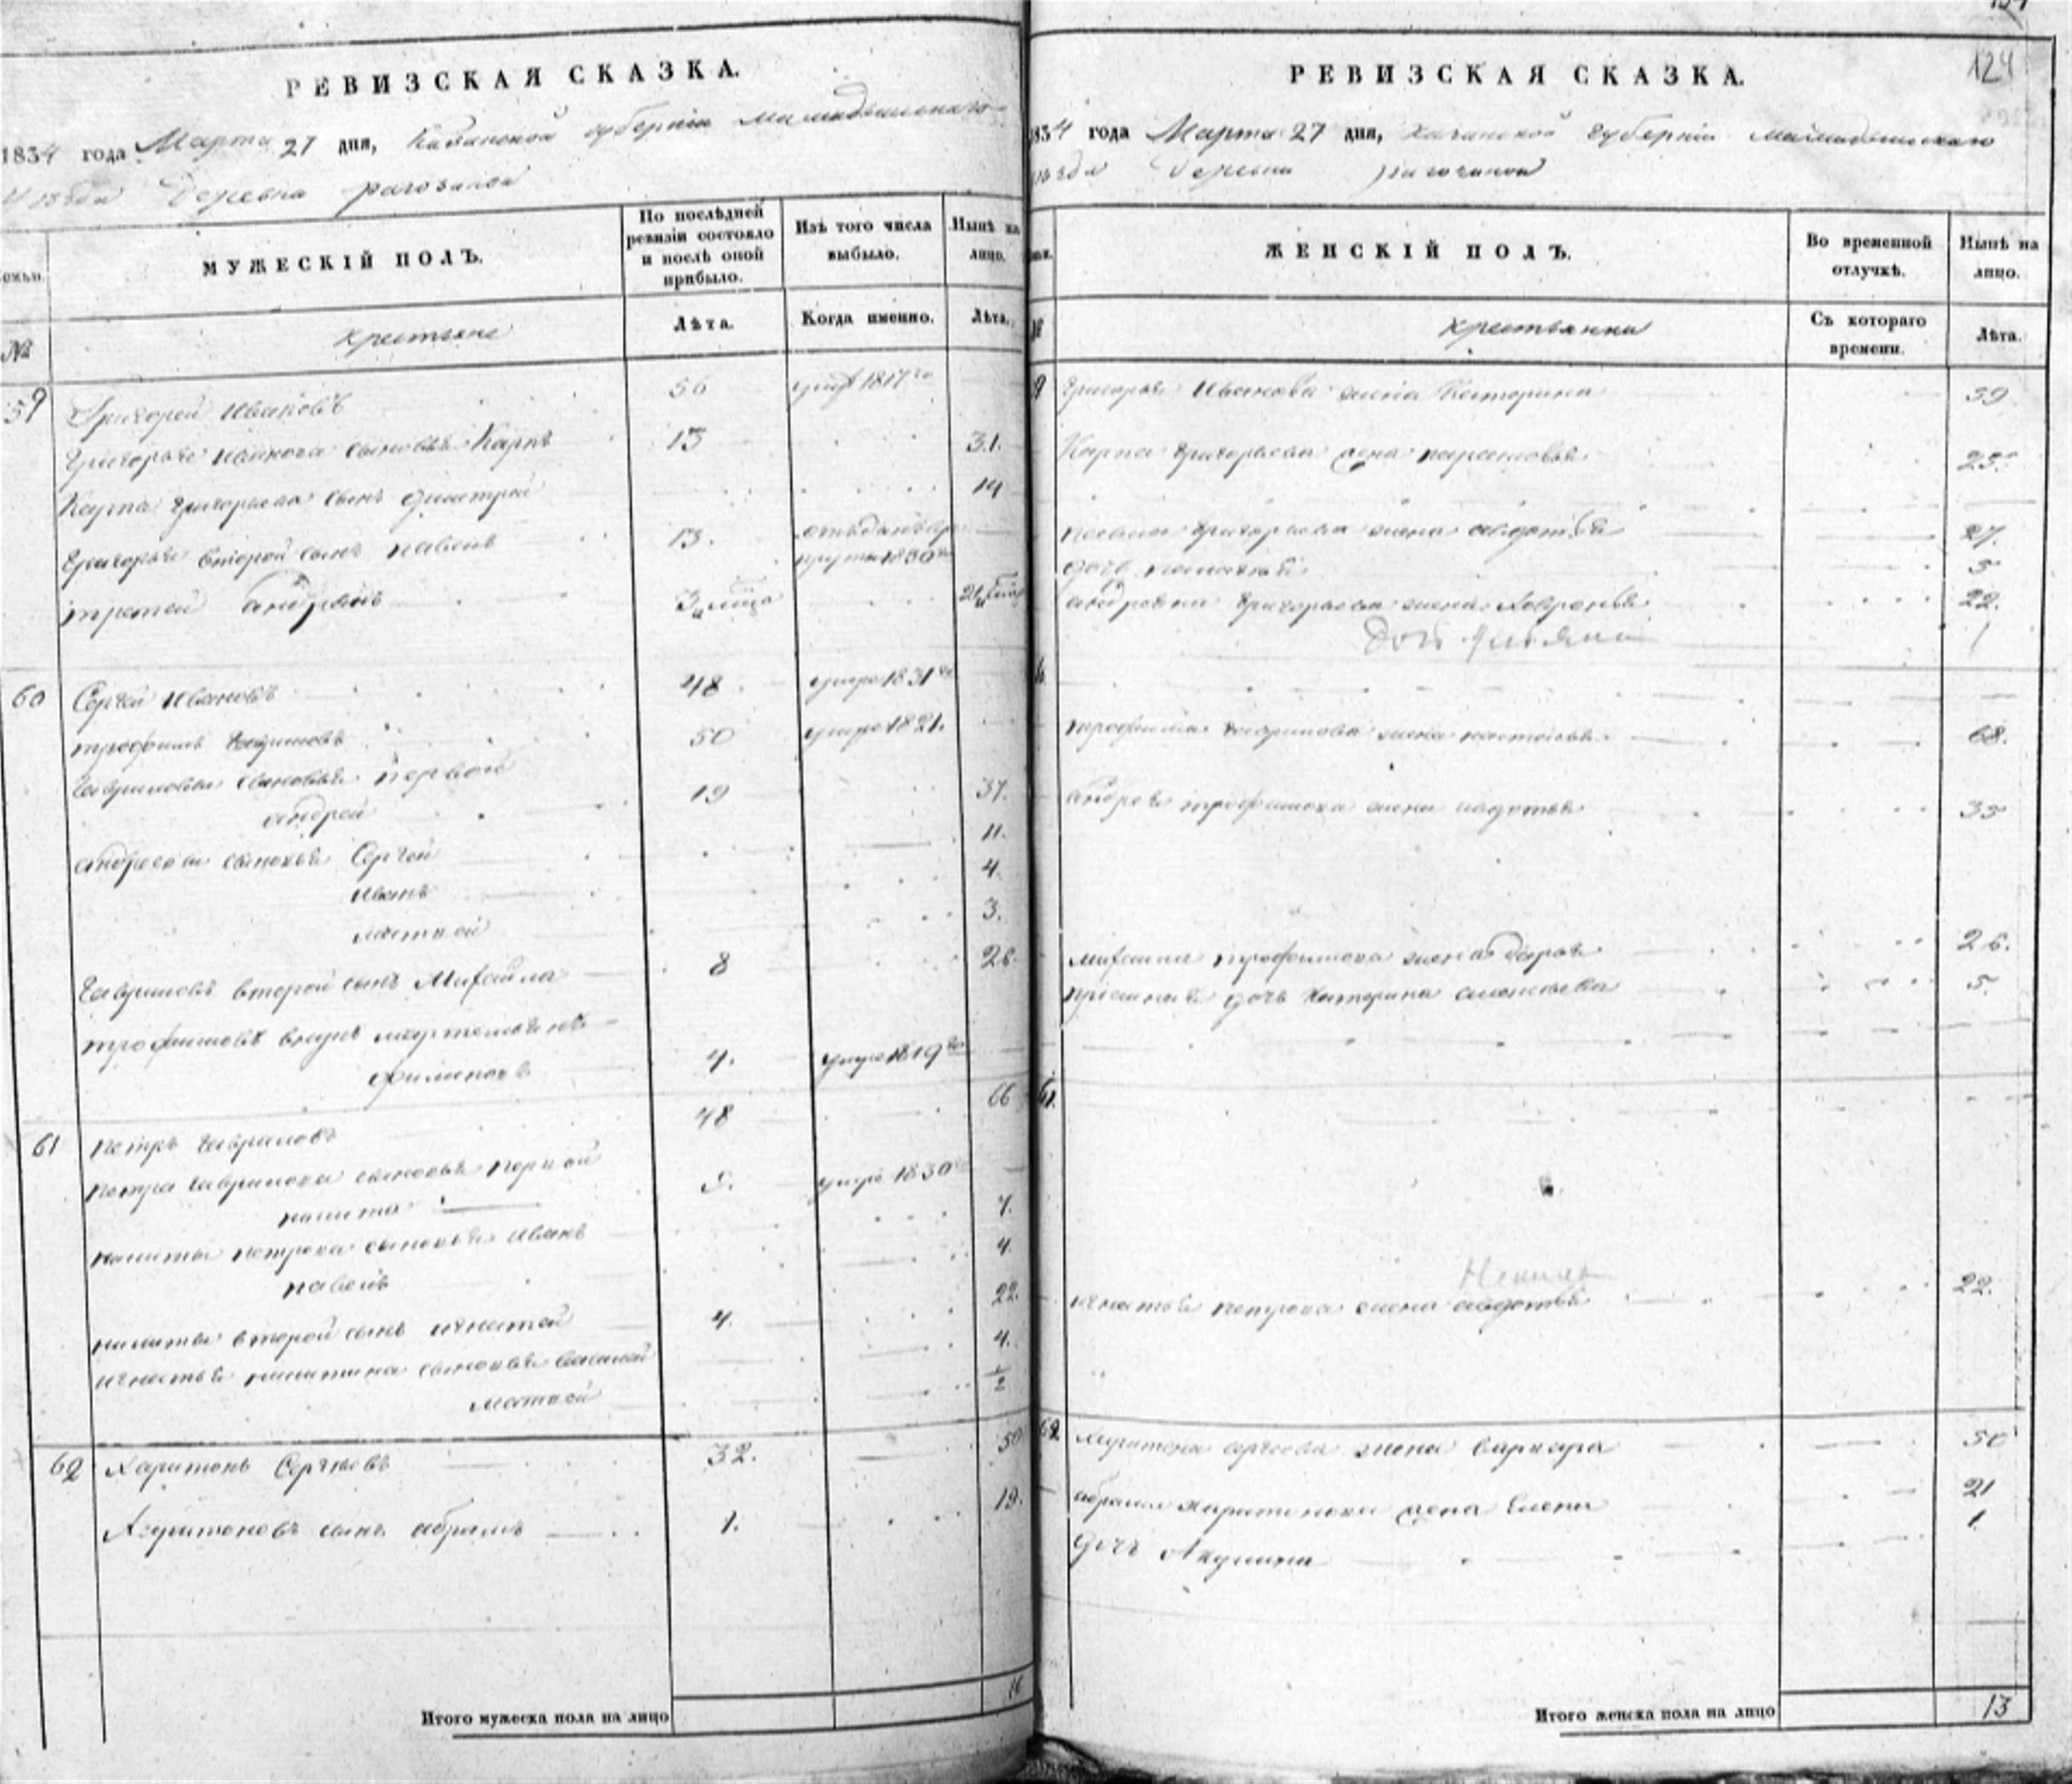 124
РЕВИЗСКАЯ СКАЗКА.
1834 года Марта 27 дня, Казанской губернии мамадышскаго
уезда Деревни рагозиной
Семьи.
МУЖЕСКІЙ ПОЛЪ.
По послѣдней ревизіи состояло и послѣ оной прибыло.
Изъ того числа выбыло.
Нынѣ на лицо.
№
крестьяне
Лѣта.
Когда именно.
Лѣта.
59 Григорей Ивановъ 56 1817го
Григорья Иванова сыновья Карпъ 13 31.
Карпа Григорьева сынъ димитрей 14
Григорья второй сынъ павелъ 13. отъданъ в рекруты 1830го
третей андреянъ 3 21
60 Сергей Ивановъ 48 умре 1831го
трофимъ 50 умре 1821.
Гавриловы сыновья первой
андрей 19 37.
андреевы сыновья Сергей 11.
иванъ 4.
матвей 3.
второй сынъ Михайла 8 26
трофимовъ внукъ
филиповъ 4. умре 1819го
61 петръ Гавриловъ 48 66
петра Гаврилова сыновья первой
никита 9. умре 1830го
никиты петрова сыновья иванъ 7.
павелъ 4.
никиты второй сынъ игнатей 4. 22.
игнатья никитина сыновья василей 4.
матвей 1/2
62 Харитонъ Сергеевъ 32. 50
Харитоновъ сынъ абрамъ 1. 19.
Итого мужеска пола на лицо 16
РЕВИЗСКАЯ СКАЗКА.
1834 года Марта 27 дня, казанской губерніи мамадышскаго
уезда деревни рагозиной
ЖЕНСКІЙ ПОЛЪ.
Во временной отлучкѣ.
Нынѣ на лицо.
№
крестьянки
Съ котораго времени.
Лѣта.
59 Григорья Иванова жена Катерина 59
Карпа Григорьева жена парасковья 25
павла Григорьева жена авдотья 27.
дочь 5
андреяна Григорьева жена Хавронья 22.
1
60
трофима Гаврилова жена настасья 68.
андрея трофимова жена авдотья 35
михаила трофимова жена дарья 26.
дочь Катерина 5.
61.
игнатья петрова жена авдотья 22.
62 Харитона сергеева жена варвара 50
абрама харитонова жена Елена 21
дочь Акулина 1.
Итого женска пола на лицо 13